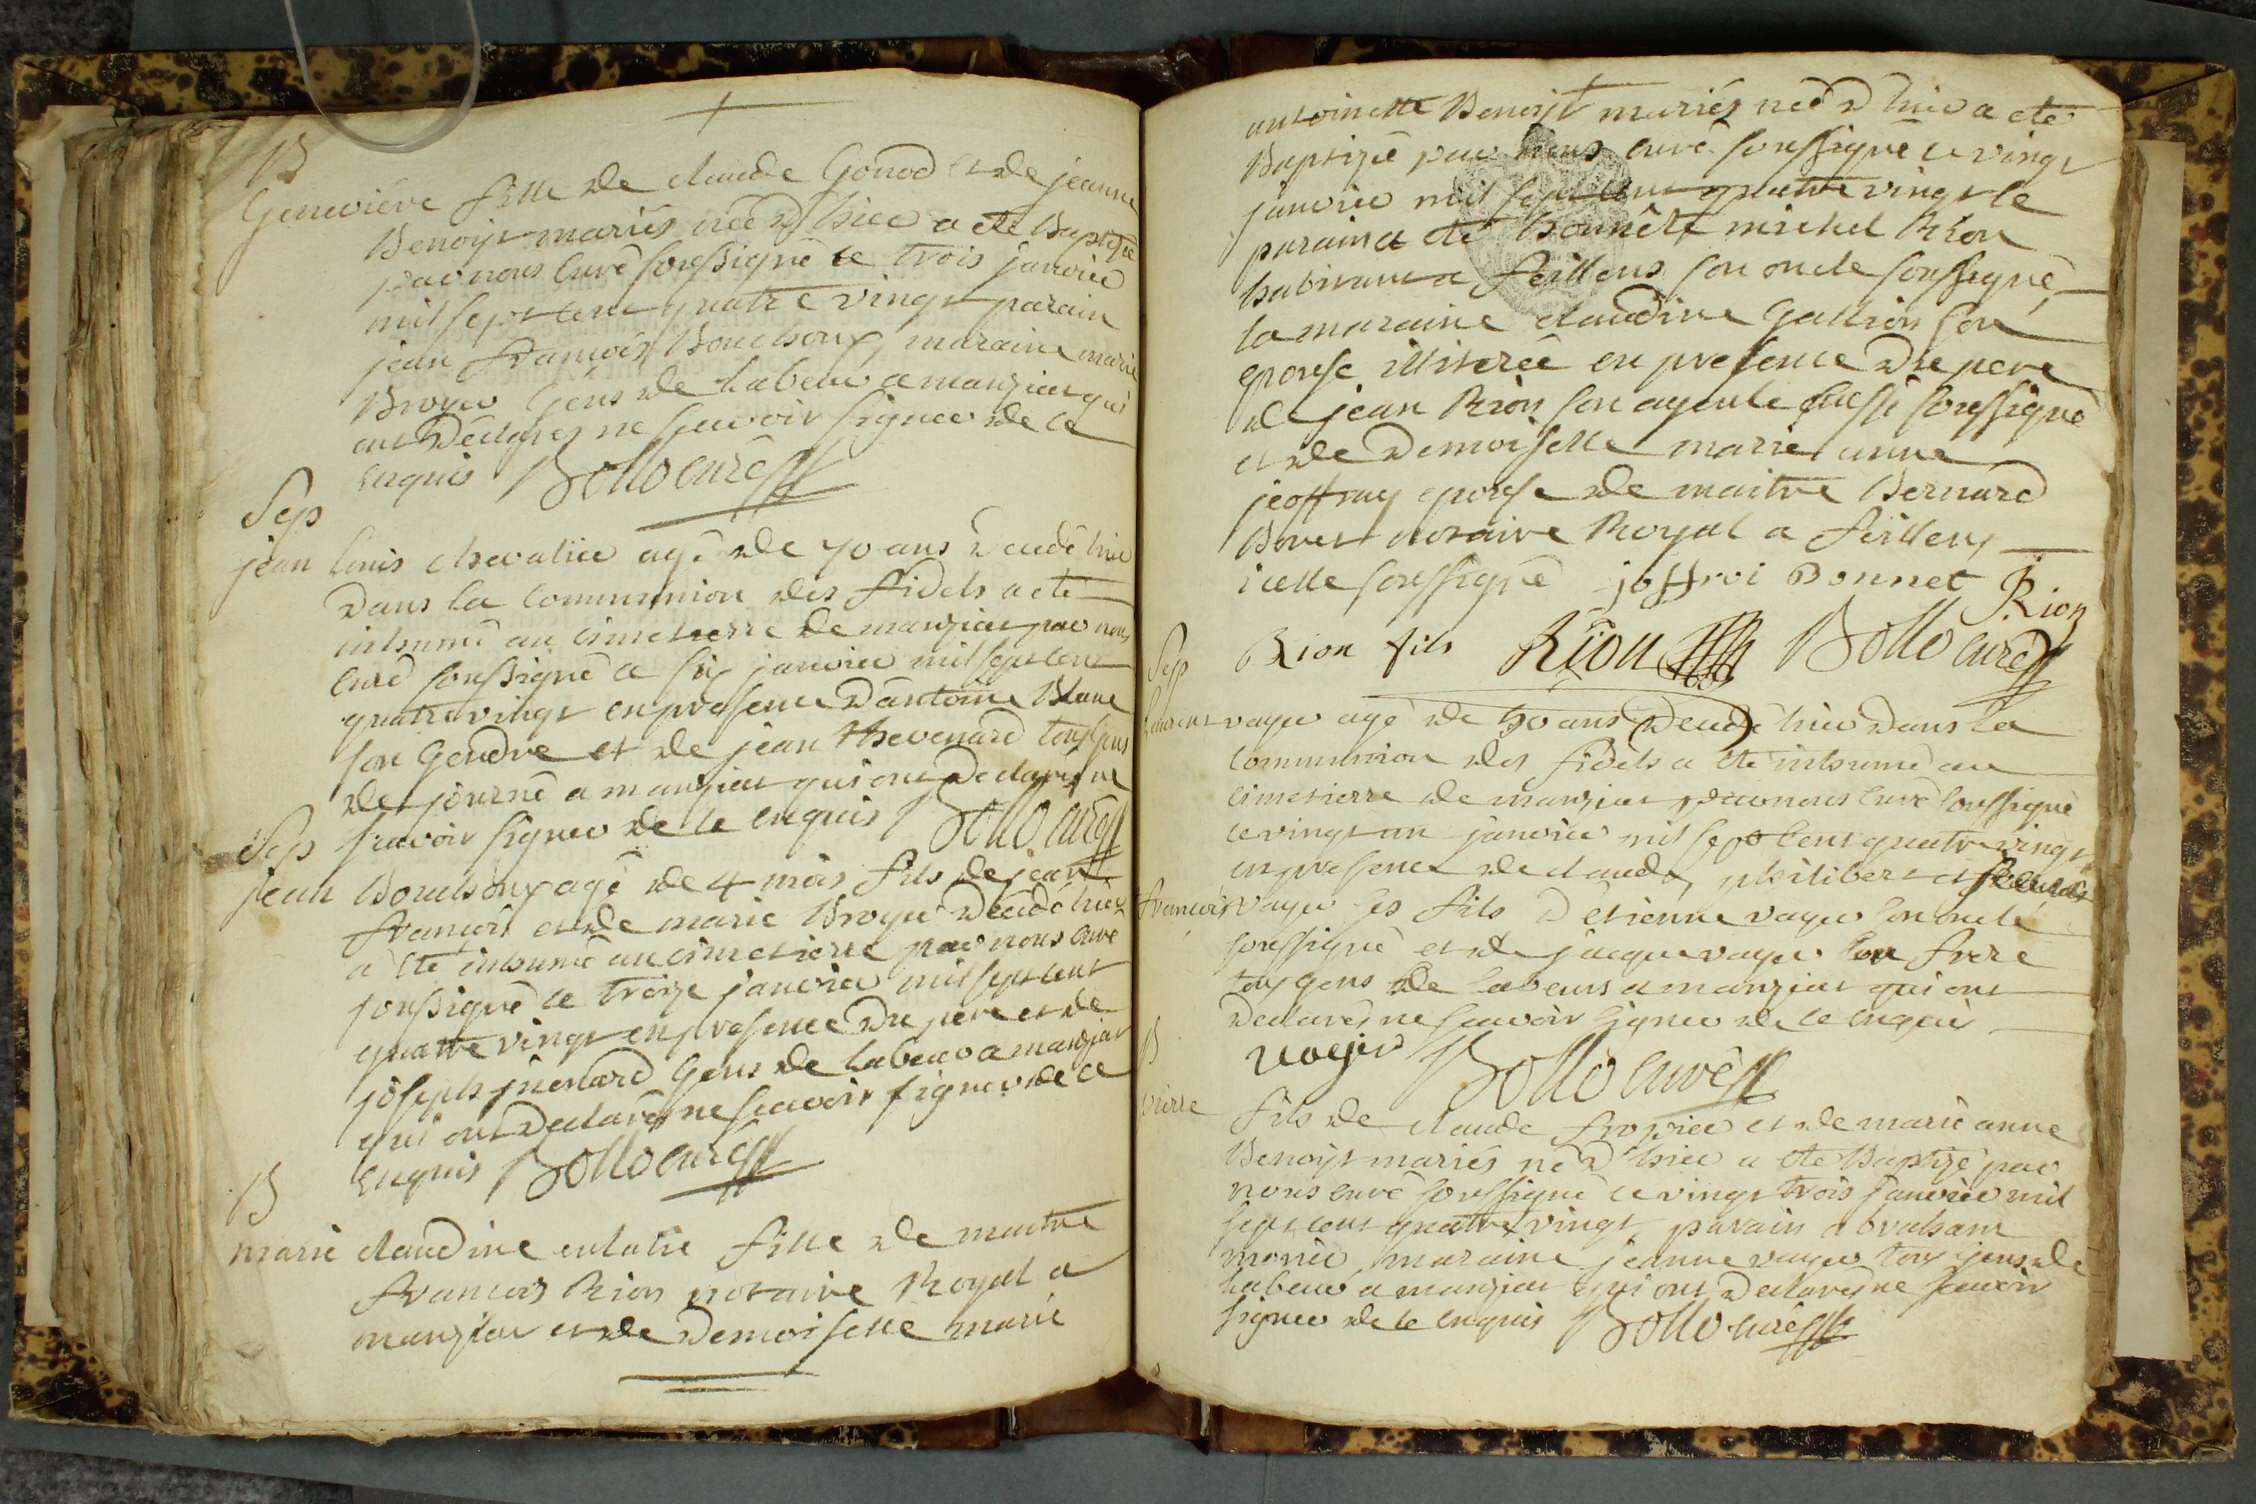 B
Geneviéve fille de claude Gonod et de jeanne
Benoist mariés née d hier a eté Baptisée
par nous Curé soussigné ce trois janvier
mil sept cent quatre vingt parain
jean françois Bouchoux, maraine marie
Broyer Gens de labeur a manziat qui
ont Déclarés ne scavoir signer de ce
enquis Bollo curé
Sep
jean louis chevalier agé de 70 ans Decedé hier
Dans la Communion des fidels a eté
inhumé au cimetierre de manziat par nous
Curé soussigné ce six janvier mil sept cent
quatre vingt en presence D'antoine Blanc
son Gendre et de jean thevenard tous Gens
de journé a manziat qui ont Declarés ne
scavoir signer de ce enquis Bollo curé
Sep
jean Bouchoux agé de 4 mois fils de jean
françois et de marie Broyer Decedé hier
a eté inhumé au cimetierre par nous curé
soussigné ce treize janvier mil sept cent
quatre vingt en presence Du pere et de
joseph Genc de labeur a manziat
qui ont Declarés ne scavoir signer de ce
enquis Bollo curé
B
marie claudine eulalie fille de maitre
francois Rion notaire Royal a
manziat et de Demoiselle marie
antoinette Benoist mariés née d hier a eté
Baptizée par nous curé soussigné ce vingt
janvier mil sept cent quatre vingt le
parain a eté honnête michel Rion
habitant a feillens son oncle soussigné
la maraine claudine Gallion son
epouse illiterée en presence Du pere
de jean Rion son ayeule aussi soussigné
et de Demoiselle marie anne
jeoffray epouse de maitre Bernard
Bonet notaire Royal a feillens
icelle soussigné joffroi Bonnet Rion
Rion fils Rion Bollo curé
Sep
Laurent voyer agé de 50 ans Decedé hier Dans la
Communion des fidels a eté inhumé au
cimetierre de manziat par nous curé soussigné
ce vingt un janvier mil sept cent quatre vingt
en presence de claude, philibert et
francois voyer ses fils D'etienne voyer son oncle
soussigné et de jacque voyer son frere
tous gens de labeurs a manziat qui ont
Declarés ne scavoir signer de ce enquis
voyer Bollo curé
B
pierre fils de claude et de marie anne
Benoist mariés né d hier a eté Baptizé par
nous curé soussigné ce vingt trois janvier mil
sept cent quatre vingt parain abraham
, maraine jeanne voyer tous gens de
labeur a manziat qui ont Declarés ne scavoir
signer de ce enquis Bollo curé